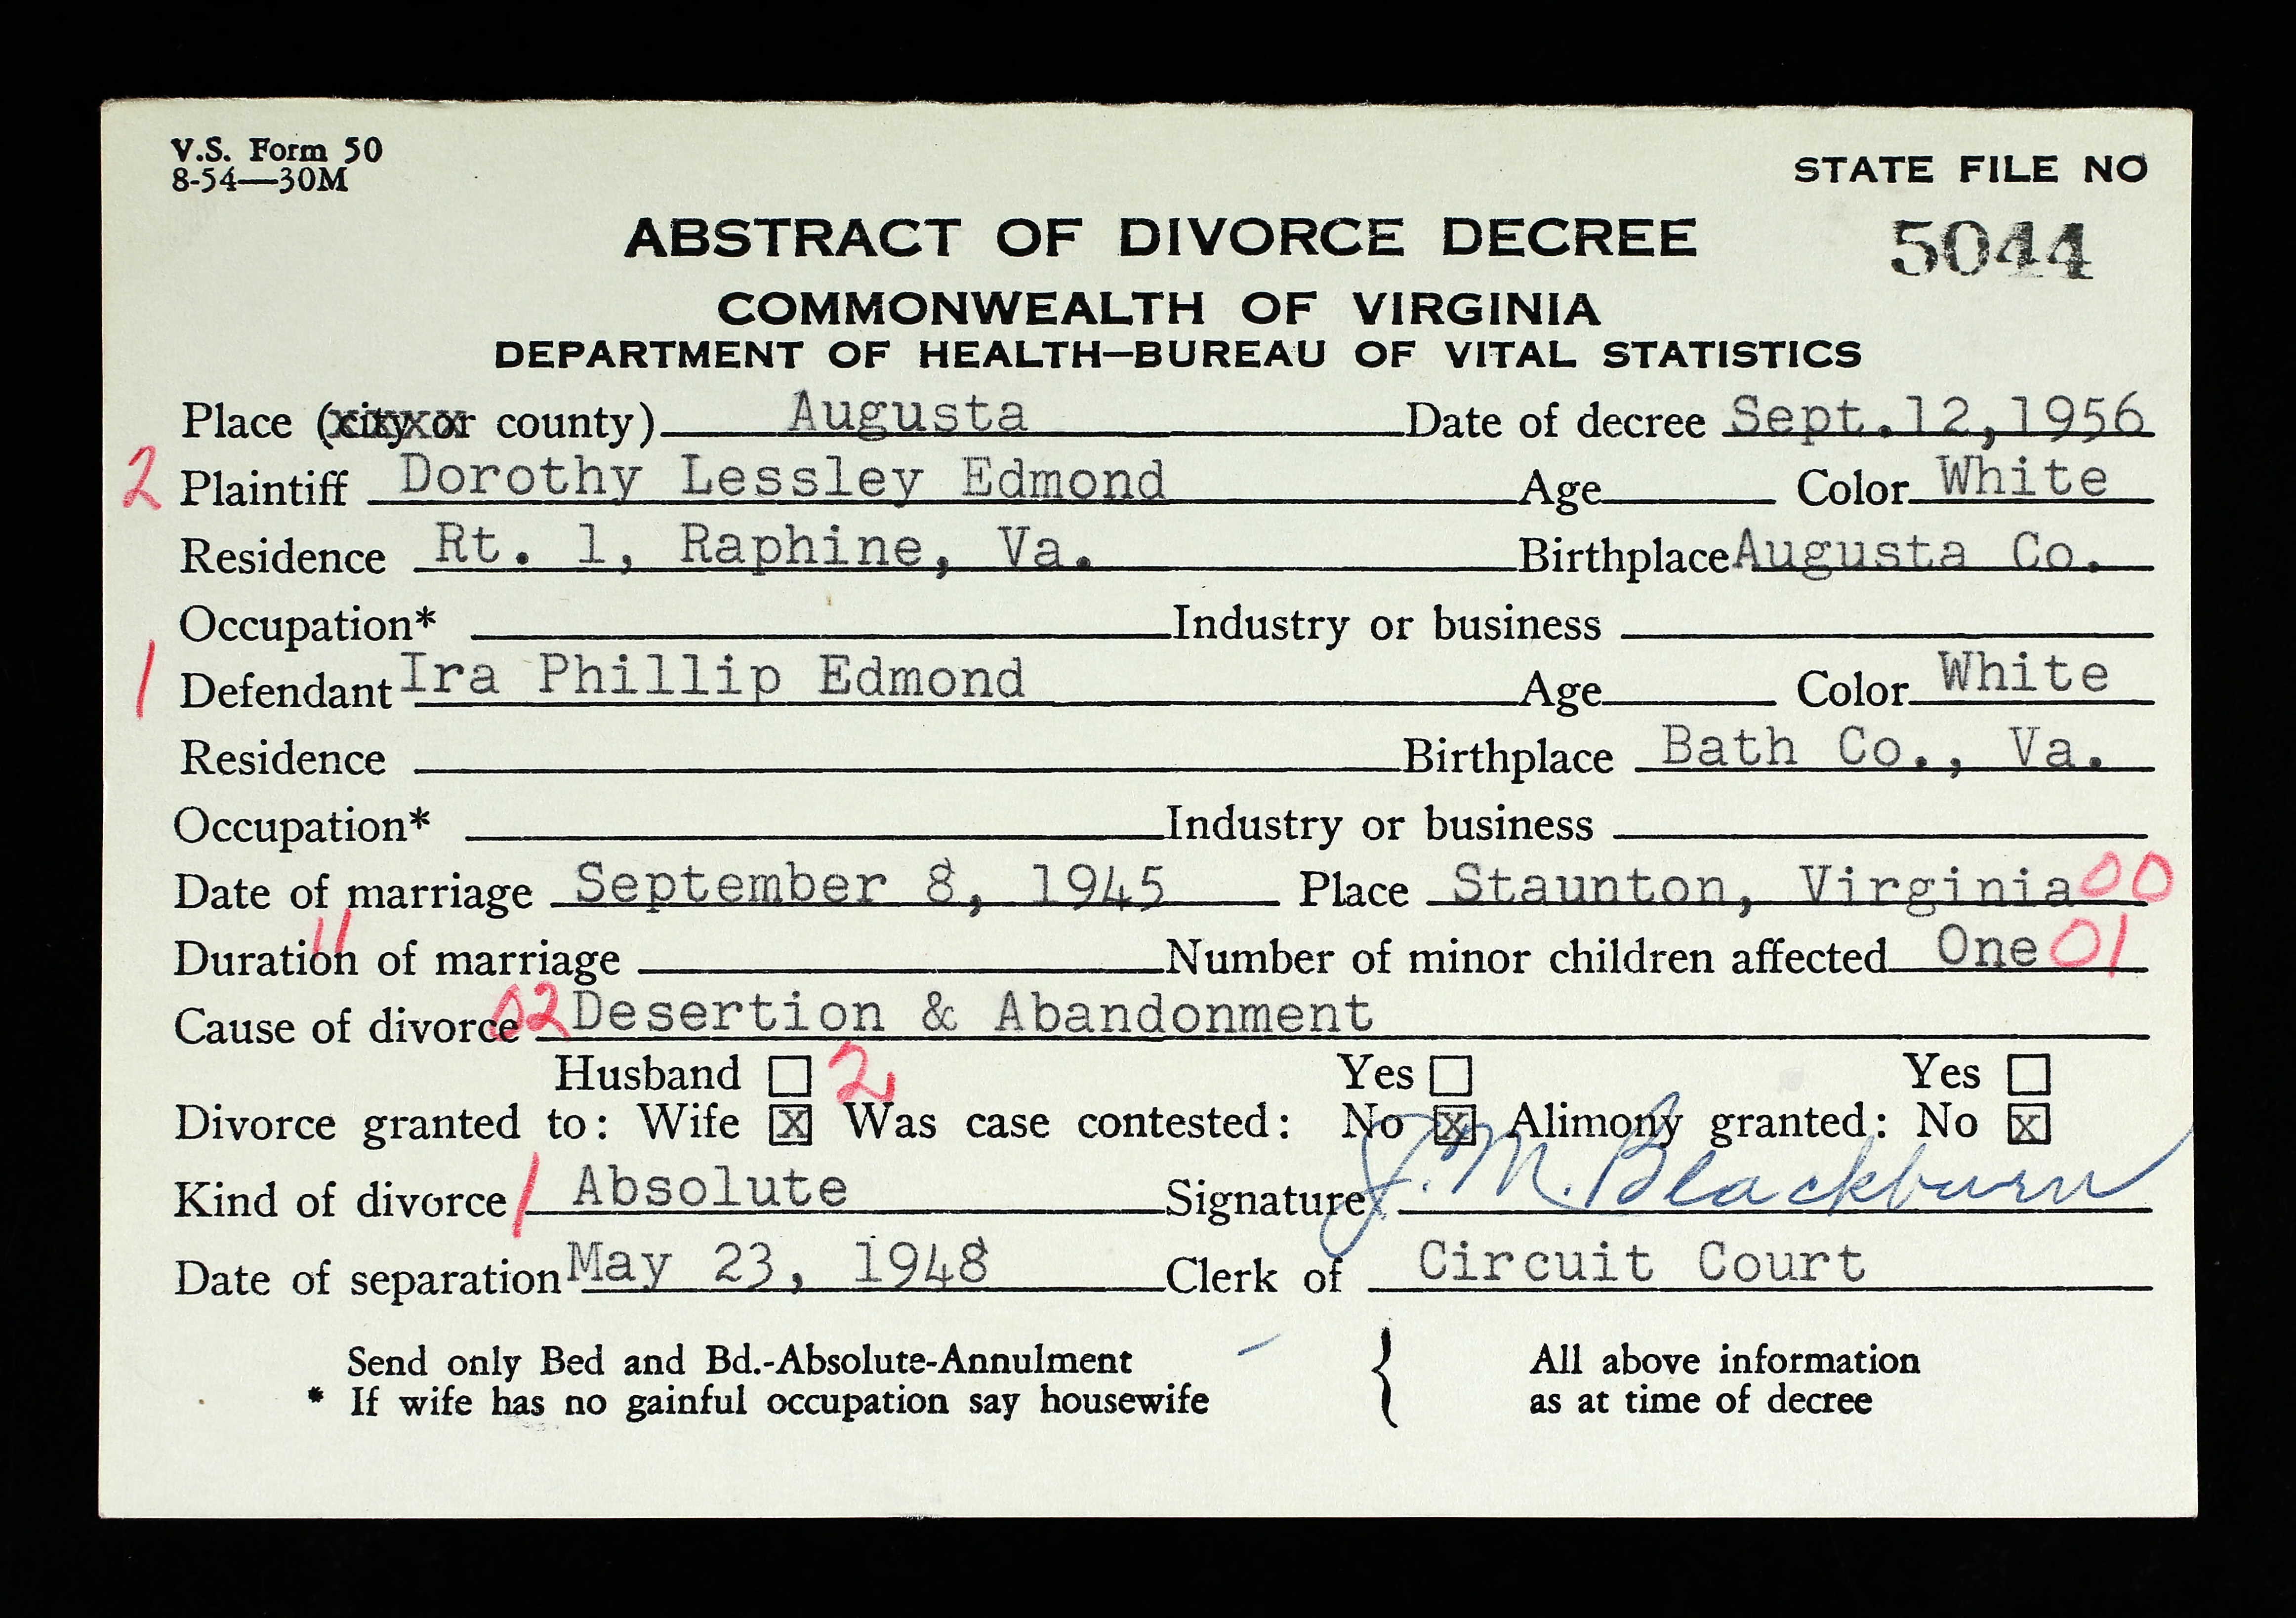 V.S. Form 50
8-54—30M
STATE FILE NO
5044
ABSTRACT OF DIVORCE DECREE
COMMONWEALTH OF VIRGINIA
DEPARTMENT OF HEALTH—BUREAU OF VITAL STATISTICS
Place (city or county) Augusta Date of decree Sept.12,1956
2 Plaintiff Dorothy Lessley Edmond Age Color White
Residence Rt. 1, Raphine, Va. Birthplace Augusta Co.
Occupation* Industry or business
1 Defendant Ira Phillip Edmond Age Color White
Residence Birthplace Bath Co., Va.
Occupation* Industry or business
Date of marriage September 8, 1945 Place Staunton, Virginia 00
11
Duration of marriage Number of minor children affected One 01
Cause of divorce 02 Desertion & Abandonment
Husband 2 Yes Yes
Divorce granted to: Wife x Was case contested: No x Alimony granted: No x
Kind of divorce 1 Absolute Signature J. M. Blackburn
Date of separation May 23, 1948 Clerk of Circuit Court
Send only Bed and Bd.-Absolute-Annulment { All above information
* If wife has no gainful occupation say housewife as at time of decree